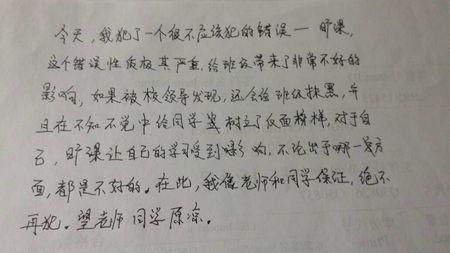 今天，我犯了一个很不应该犯的错误一旷课，
这个错误性质极其严重，给班级带来了非常不好的
影响，如果被校领导发现，还会给班级抹黑，并
且在不知不觉中给同学树立了反面榜样，对于自
己，旷课让自己的学习受到影响，不论出于哪一方
面，都是不好的。在此，我像老师和同学保证，绝不
再犯。望老师同学原谅。